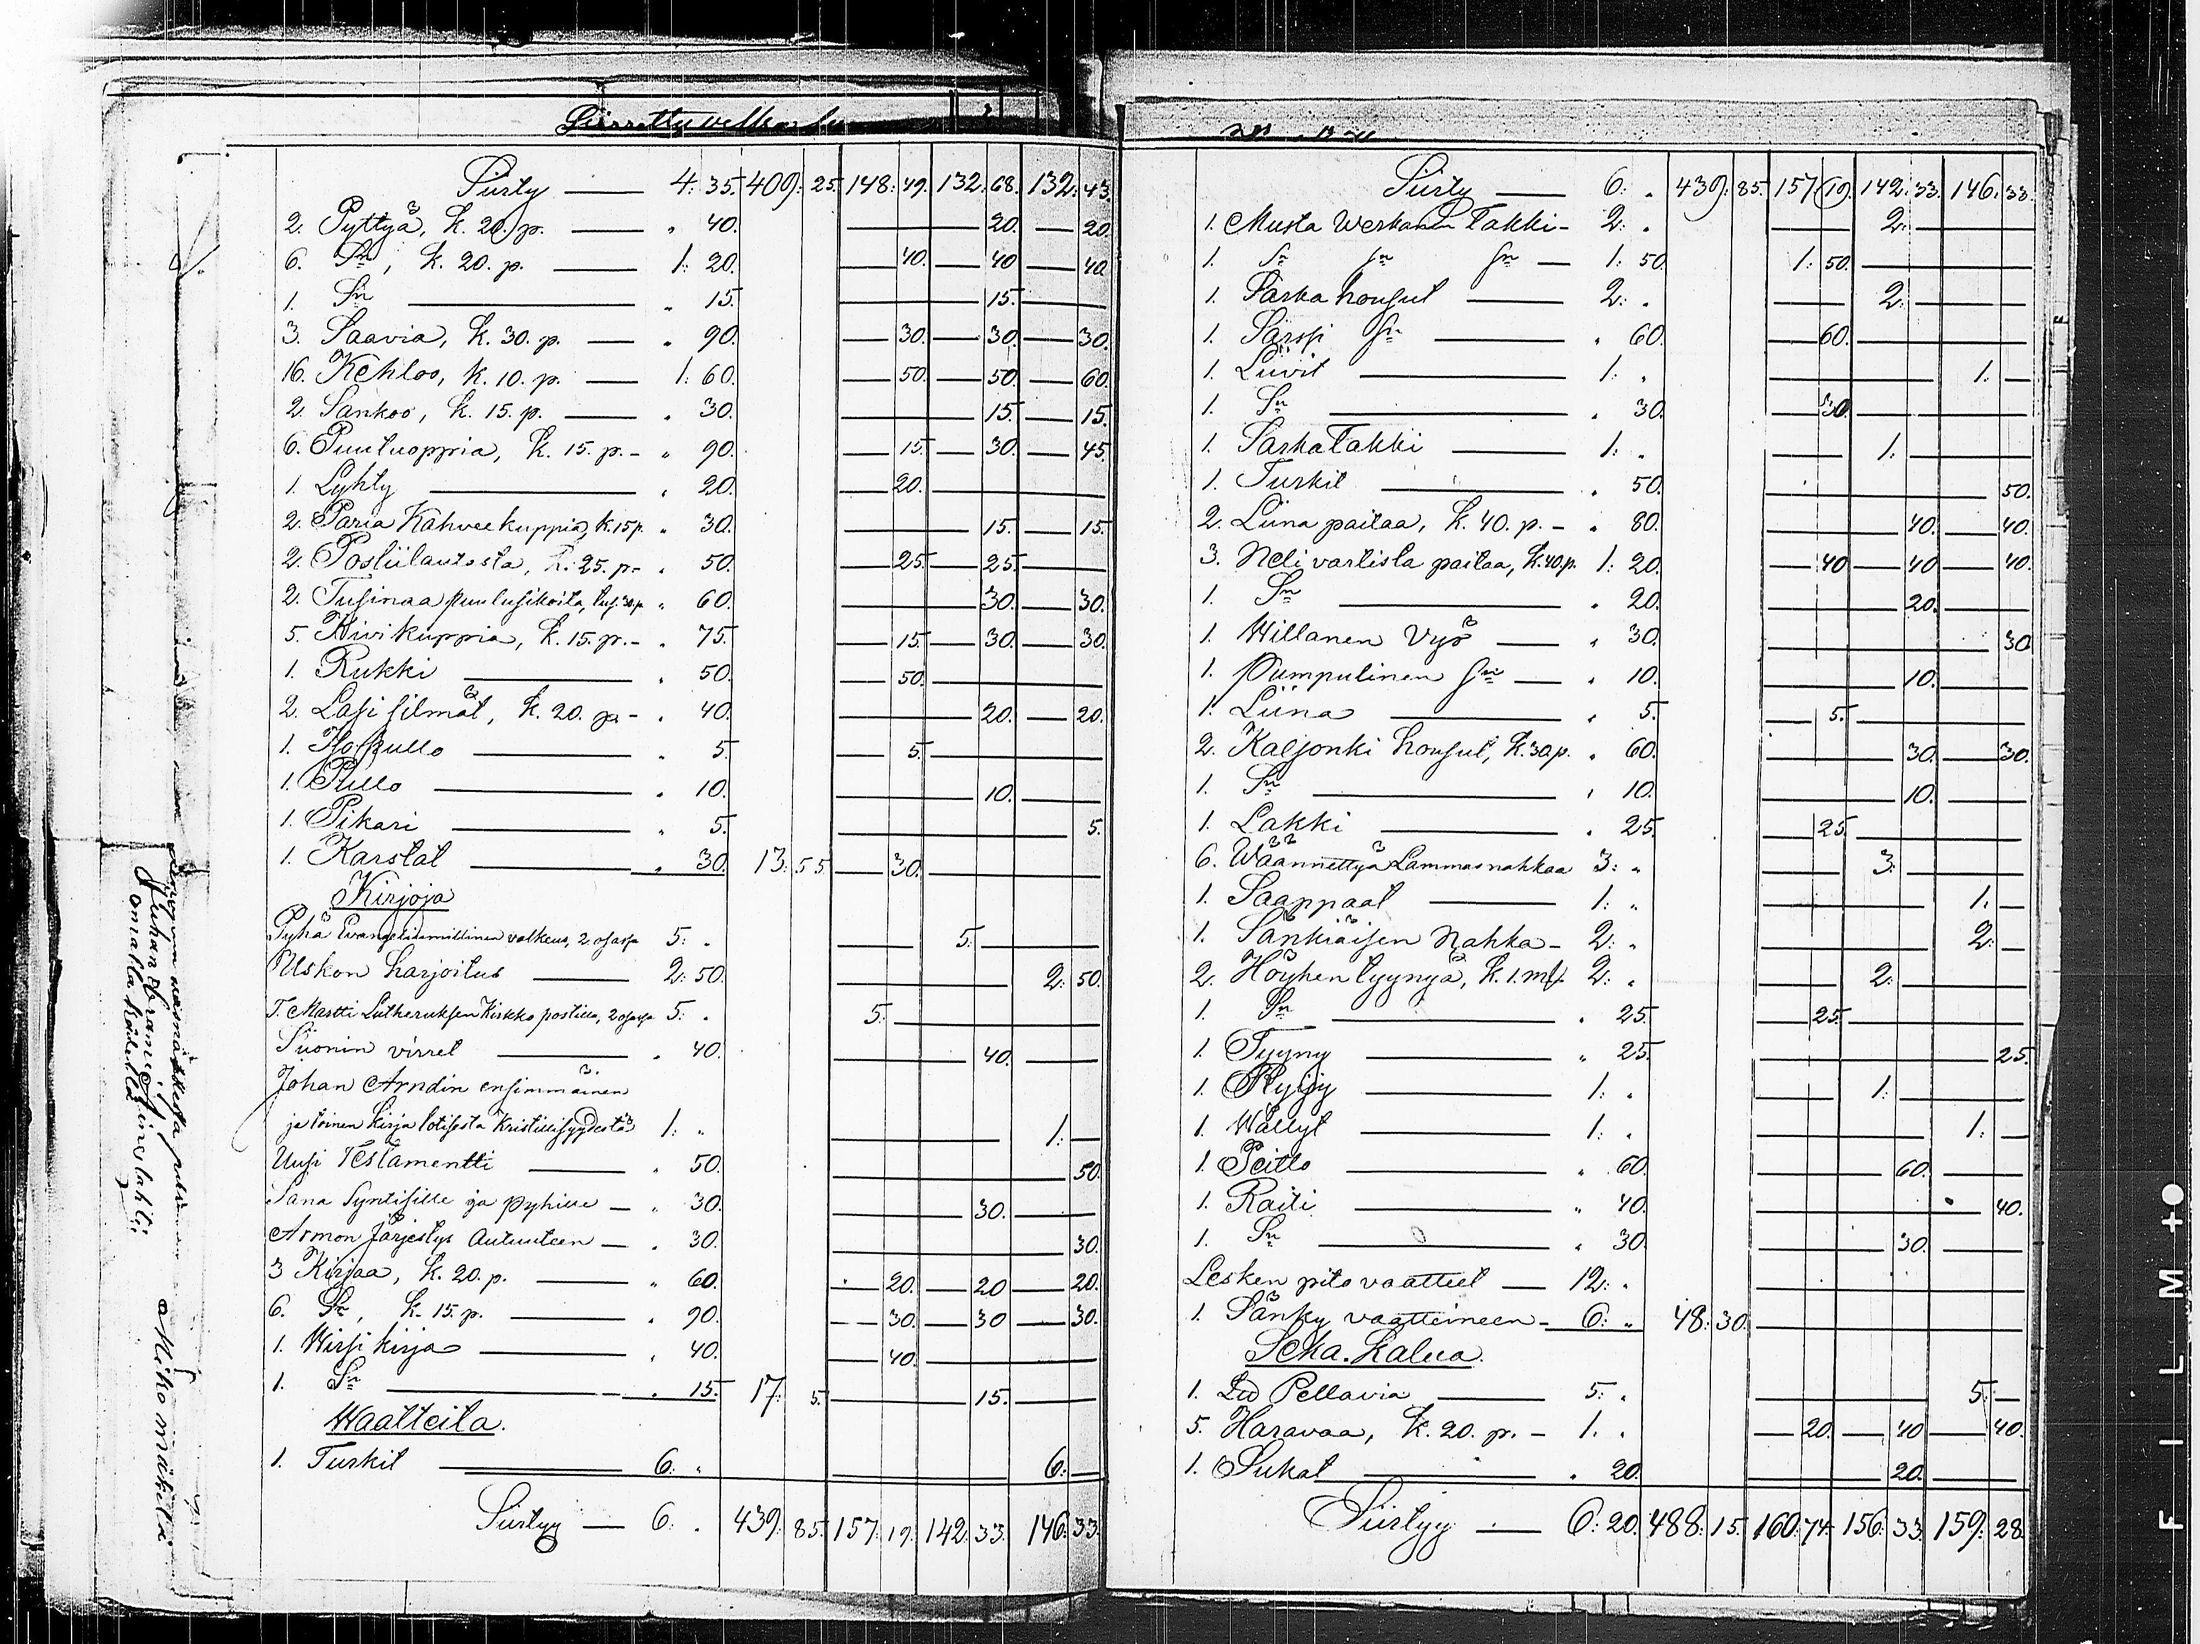 Siirty — 4: 35. 409: 25. 148: 49. 132: 68. 132: 43.
2. Pyttyä, k. 20. p. — „ 40. — 20. — 20.
6. Sn, k. 20. p. — 1: 20. — 40. — 40 — 40.
1. Sn — „ 15. — 15. —
3. Saavia, k. 30. p. — „ 90. — 30. — 30. — 30.
16. Kehloo, k. 10. p. — 1: 60. — 50. — 50. — 60.
2. Sankoo, k. 15. p. — „ 30. — 15. — 15.
6. Puutuoppia, k. 15. p. - „ 90. — 15. — 30. — 45.
1. Lyhty — „ 20. — 20. —
2. Paria Kahveekuppia, k. 15 p. „ 30. — 15. — 15.
2. Postiilautasta, k. 25. p. - „ 50. — 25. — 25. —
2. Tusinaa puulusikoita, tus. 30 p. „ 60. — 30. — 30.
5. Kivikuppia, k. 15. p. - „ 75. — 15. — 30. — 30.
1. Rukki — „ 50. — 50. —
2. Lasi silmät, k. 20. p. - „ 40. — 20. — 20.
1. Iso pullo — „ 5. — 5. —
1. Pullo — „ 10. — 10. —
1. Pikari — „ 5. — 5.
1. Karstat — „ 30. 13: 55. — 30. —
Kirjoja
Pyhä Evangeliumillinen valkeus, 2 osassa 5: „ — 5: —
Uskon harjoitus — 2: 50. — 2: 50.
T. Martti Lutheruksen Kirkko postilla, 2 osassa 5: „ 5: —
Siionin virret — „ 40. — 40. —
Johan Arndin ensimmäinen
ja toinen kirja totisesta Kristillisyydestä 1: „ — 1: —
Uusi Testamentti — „ 50. — 50.
Sana Syntisille ja pyhille — „ 30. — 30. —
Armon Järjestys Autuuteen — „ 30. — 30.
3 Kirjaa, k. 20. p. — „ 60. — 20. — 20 — 20.
6. Sn, k. 15. p. — „ 90. — 30. — 30 — 30.
1. Wirsi kirja — „ 40. — 40. —
1. Sn — „ 15. 17: 5. — 15. —
Waatteita.
1. Turkit — 6: „ — 6: —
Siirtyy — 6: „ 439: 85. 157: 19. 142: 33. 146: 33.
Juhan Franssi
omalla kädellä
Mikonmäkitä
Siirty — 6: „ 439: 85. 157: 19. 142: 33. 146: 33.
1. Musta Werkanen Takki - 2: „ — 2: —
1. Sn Sn Sn — 1: 50. 1: 50. —
1. Sarka housut — 2: „ — 2: —
1. Sarssi Sn — „ 60. — 60. —
1. Liivit — 1: „ — 1: —
1. Sn — „ 30. — 30. —
1. Sarka Takki — 1: „ — 1: —
1. Turkit — „ 50. — 50.
2. Liina paitaa, k. 40. p. - „ 80. — 40. — 40.
3. Neli vartista paitaa, k. 40. p. 1: 20. — 40 — 40 — 40.
1. Sn — „ 20. — 20. —
1. Willanen Vyö — „ 30. — 30
1. Pumpulinen Sn — „ 10. — 10. —
1. Liina — „ 5. — 5. —
2. Kaljonki housut, k. 30 p. „ 60. — 30. — 30.
1. Sn — „ 10. — 10. —
1. Lakki — „ 25. — 25. —
6. Wäännettyä Lammasnahkaa 3: „ — 3: —
1. Saappaat — 1: „ — 1: —
1. Sänkiäisen Nahka - 2: „ — 2: —
2. Höyhen tyynyä, k. 1. mk. 2: „ — 2: —
1. Sn — „ 25. — 25. —
1. Tyyny — „ 25. — 25.
1. Ryijy — 1: „ — 1: —
1. Wällyt — 1: „ — 1: —
1. Peitto — „ 60. — 60. —
1. Raiti — „ 40. — 40.
1. Sn — „ 30. — 30. —
Lesken pito vaatteet — 12: „ —
1. Sänky vaatteineen - 6: „ 48: 30. —
Seka. kalua.
1. Pellavia — 5: „ — 5: —
5. Haravaa, k. 20. p. - 1. „ — 20. — 40 — 40.
1. Sukat — „ 20. — 20. —
Siirtyy — 6: 20. 488: 15. 160: 74. 156: 33. 159: 28.
FILM